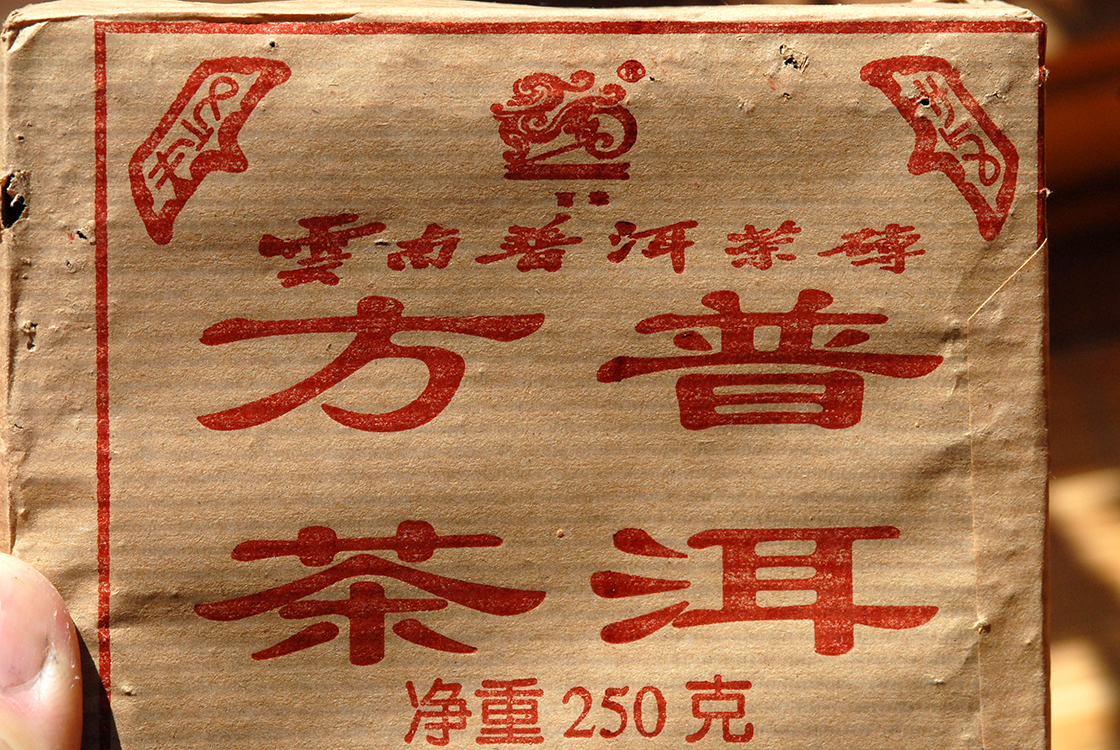 雲南普洱茶磚
普洱
方茶
净重 250 克